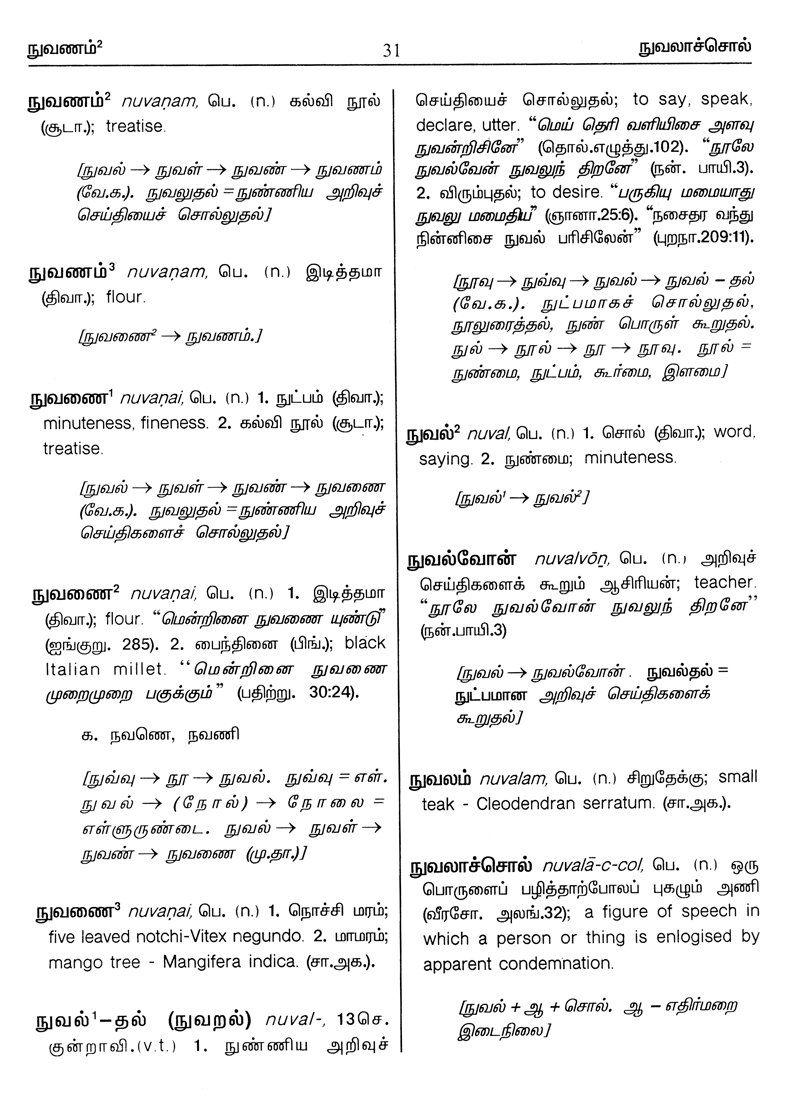 நுவணம்²
31
நுவலாச்சொல்
நுவணம்² nuvaṇam, பெ. (n.) கல்வி நூல்
(சூடா.); treatise.
[நுவல் → நுவள் → நுவண் → நுவணம்
(வே.க.). நுவலுதல் = நுண்ணிய அறிவுச்
செய்தியைச் சொல்லுதல்]
நுவணம்³ nuvaṇam, பெ. (n.) இடித்தமா
(திவா.); flour.
[நுவணை² → நுவணம்.]
நுவணை¹ nuvaṇai, பெ. (n.) 1. நுட்பம் (திவா.);
minuteness, fineness. 2. கல்வி நூல் (சூடா.);
treatise.
[நுவல் → நுவள் → நுவண் → நுவணை
(வே.க.). நுவலுதல் = நுண்ணிய அறிவுச்
செய்திகளைச் சொல்லுதல்]
நுவணை² nuvaṇai, பெ. (n.) 1. இடித்தமா
(திவா.); flour. “மென்றினை நுவணை யுண்டு”
(ஐங்குறு. 285). 2. பைந்தினை (பிங்.); black
Italian millet. ‘‘மென்றினை நுவணை
முறைமுறை பகுக்கும்” (பதிற்று. 30:24).
க. நவணெ, நவணி
[நுவ்வு → நூ → நுவல். நுவ்வு = எள்.
நுவல் → (நோல்) → நோலை =
எள்ளுருண்டை. நுவல் → நுவள் →
நுவண் → நுவணை (மு.தா.)]
நுவணை³ nuvaṇai, பெ. (n.) 1. நொச்சி மரம்;
five leaved notchi-Vitex negundo. 2. மாமரம்;
mango tree - Mangifera indica. (சா.அக.).
நுவல்¹–தல் (நுவறல்) nuval-, 13செ.
குன்றாவி.(v.t.) 1. நுண்ணிய அறிவுச்
செய்தியைச் சொல்லுதல்; to say, speak,
declare, utter. “மெய் தெரி வளியிசை அளவு
நுவன்றிசினே” (தொல்.எழுத்து.102). “நூலே
நுவல்வேன் நுவலுந் திறனே” (நன். பாயி.3).
2. விரும்புதல்; to desire. “பருகியு மமையாது
நுவலு மமைதிய” (ஞானா.25:6). “நசைதர வந்து
நின்னிசை நுவல் பரிசிலேன்” (புறநா.209:11).
[நூவு → நுவ்வு → நுவல் → நுவல் – தல்
(வே.க.). நுட்பமாகச் சொல்லுதல்,
நூலுரைத்தல், நுண் பொருள் கூறுதல்.
நுல் → நூல் → நூ → நூவு. நூல் =
நுண்மை, நுட்பம், கூர்மை, இளமை]
நுவல்² nuval, பெ. (n.) 1. சொல் (திவா.); word,
saying. 2. நுண்மை; minuteness.
[நுவல்¹ → நுவல்²]
நுவல்வோன் nuvalvōṉ, பெ. (n.) அறிவுச்
செய்திகளைக் கூறும் ஆசிரியன்; teacher.
“நூலே நுவல்வோன் நுவலுந் திறனே”
(நன்.பாயி.3)
[நுவல் → நுவல்வோன் . நுவல்தல் =
நுட்பமான அறிவுச் செய்திகளைக்
கூறுதல்]
நுவலம் nuvalam, பெ. (n.) சிறுதேக்கு; small
teak - Cleodendran serratum. (சா.அக.).
நுவலாச்சொல் nuvalā-c-col, பெ. (n.) ஒரு
பொருளைப் பழித்தாற்போலப் புகழும் அணி
(வீரசோ. அலங்.32); a figure of speech in
which a person or thing is enlogised by
apparent condemnation.
[நுவல் + ஆ + சொல். ஆ – எதிர்மறை
இடைநிலை]